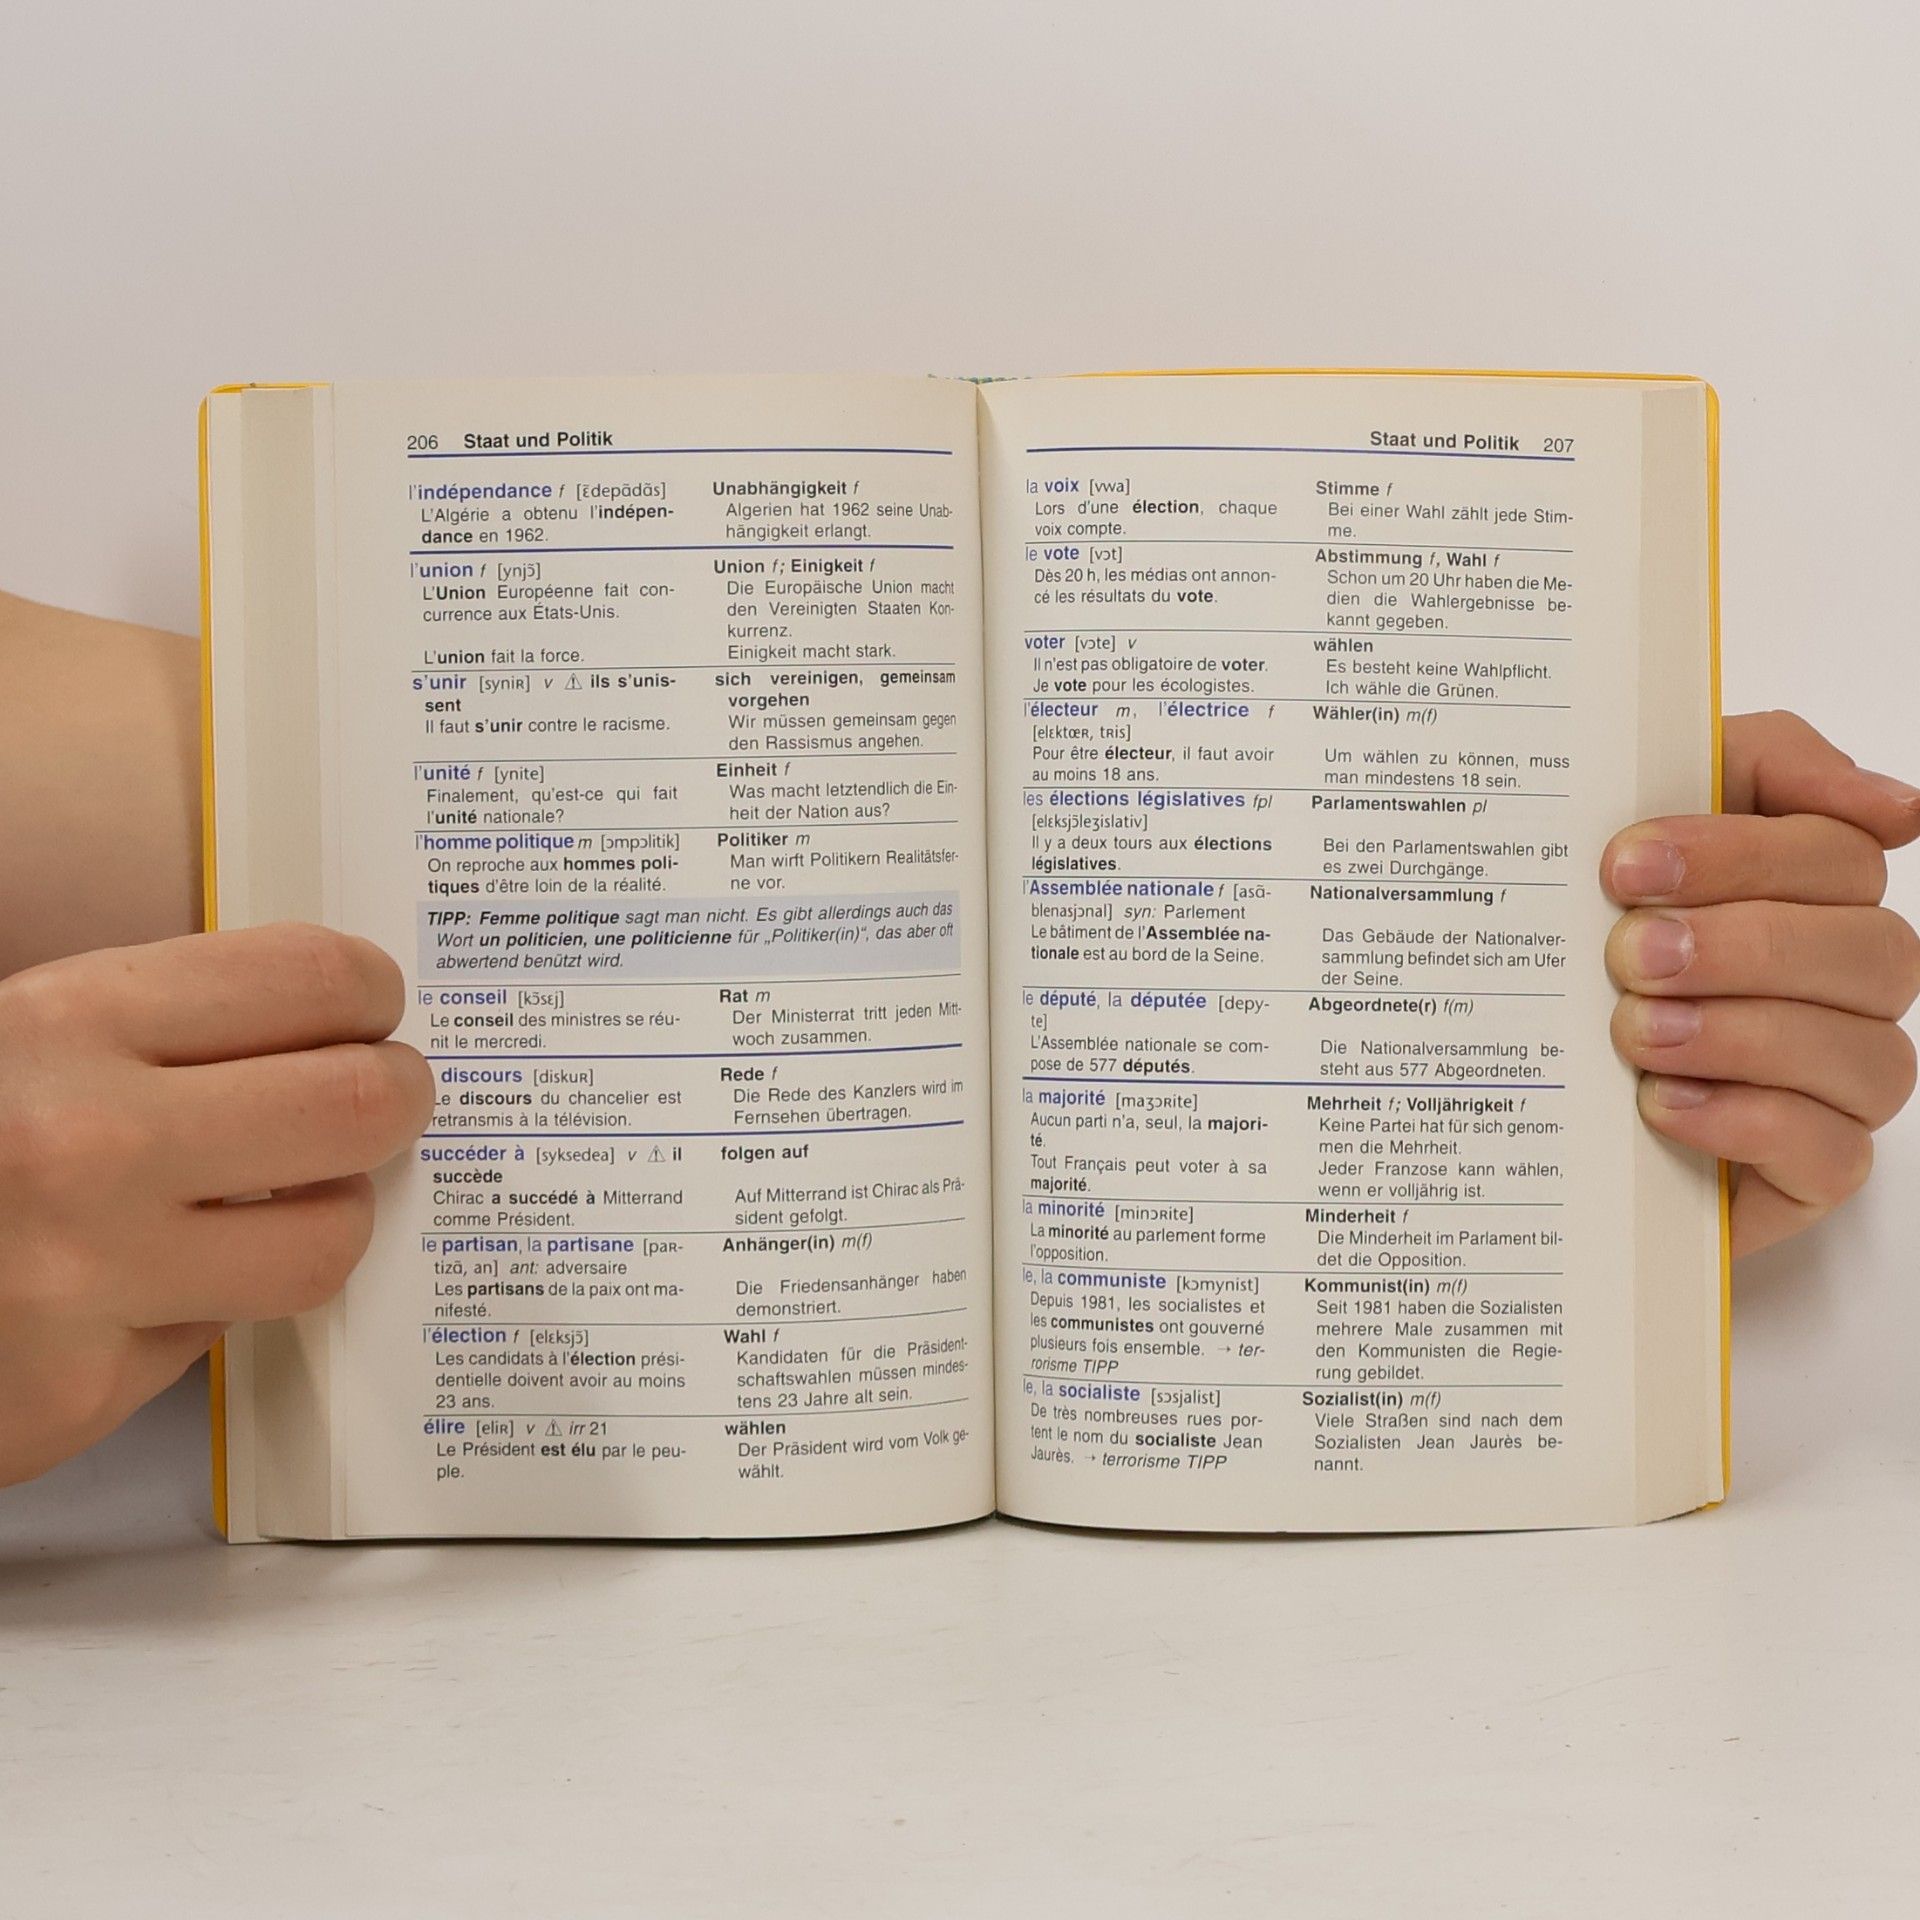 206 Staat und Politik
l'indépendance f [ɛ̃depɑ̃dɑ̃s]
L'Algérie a obtenu l'indépen-
dance en 1962.
Unabhängigkeit f
Algerien hat 1962 seine Unab-
hängigkeit erlangt.
l'union f [ynjɔ̃]
L'Union Européenne fait con-
currence aux États-Unis.
L'union fait la force.
Union f; Einigkeit f
Die Europäische Union macht
den Vereinigten Staaten Kon-
kurrenz.
Einigkeit macht stark.
s'unir [syniʀ] v ⚠ ils s'unis-
sent
Il faut s'unir contre le racisme.
sich vereinigen, gemeinsam
vorgehen
Wir müssen gemeinsam gegen
den Rassismus angehen.
l'unité f [ynite]
Finalement, qu'est-ce qui fait
l'unité nationale?
Einheit f
Was macht letztendlich die Ein-
heit der Nation aus?
l'homme politique m [ɔmpɔlitik]
On reproche aux hommes poli-
tiques d'être loin de la réalité.
Politiker m
Man wirft Politikern Realitätsfer-
ne vor.
TIPP: Femme politique sagt man nicht. Es gibt allerdings auch das
Wort un politicien, une politicienne für „Politiker(in)“, das aber oft
abwertend benützt wird.
le conseil [kɔ̃sɛj]
Le conseil des ministres se réu-
nit le mercredi.
Rat m
Der Ministerrat tritt jeden Mitt-
woch zusammen.
discours [diskuʀ]
Le discours du chancelier est
retransmis à la télévision.
Rede f
Die Rede des Kanzlers wird im
Fernsehen übertragen.
succéder à [syksedea] v ⚠ il
succède
Chirac a succédé à Mitterrand
comme Président.
folgen auf
Auf Mitterrand ist Chirac als Prä-
sident gefolgt.
le partisan, la partisane [paʀ-
tizɑ̃, an] ant: adversaire
Les partisans de la paix ont ma-
nifesté.
Anhänger(in) m(f)
Die Friedensanhänger haben
demonstriert.
l'élection f [elɛksjɔ̃]
Les candidats à l'élection prési-
dentielle doivent avoir au moins
23 ans.
Wahl f
Kandidaten für die Präsident-
schaftswahlen müssen mindes-
tens 23 Jahre alt sein.
élire [eliʀ] v ⚠ irr 21
Le Président est élu par le peu-
ple.
wählen
Der Präsident wird vom Volk ge-
wählt.
Staat und Politik 207
la voix [vwa]
Lors d'une élection, chaque
voix compte.
Stimme f
Bei einer Wahl zählt jede Stim-
me.
le vote [vɔt]
Dès 20 h, les médias ont annon-
cé les résultats du vote.
Abstimmung f, Wahl f
Schon um 20 Uhr haben die Me-
dien die Wahlergebnisse be-
kannt gegeben.
voter [vɔte] v
Il n'est pas obligatoire de voter.
Je vote pour les écologistes.
wählen
Es besteht keine Wahlpflicht.
Ich wähle die Grünen.
l'électeur m, l'électrice f
[elɛktœʀ, tʀis]
Pour être électeur, il faut avoir
au moins 18 ans.
Wähler(in) m(f)
Um wählen zu können, muss
man mindestens 18 sein.
les élections législatives fpl
[elɛksjɔ̃leʒislativ]
Il y a deux tours aux élections
législatives.
Parlamentswahlen pl
Bei den Parlamentswahlen gibt
es zwei Durchgänge.
l'Assemblée nationale f [asɑ̃-
blenasjɔnal] syn: Parlement
Le bâtiment de l'Assemblée na-
tionale est au bord de la Seine.
Nationalversammlung f
Das Gebäude der Nationalver-
sammlung befindet sich am Ufer
der Seine.
le député, la députée [depy-
te]
L'Assemblée nationale se com-
pose de 577 députés.
Abgeordnete(r) f(m)
Die Nationalversammlung be-
steht aus 577 Abgeordneten.
la majorité [maʒɔʀite]
Aucun parti n'a, seul, la majori-
té.
Tout Français peut voter à sa
majorité.
Mehrheit f; Volljährigkeit f
Keine Partei hat für sich genom-
men die Mehrheit.
Jeder Franzose kann wählen,
wenn er volljährig ist.
la minorité [minɔʀite]
La minorité au parlement forme
l'opposition.
Minderheit f
Die Minderheit im Parlament bil-
det die Opposition.
le, la communiste [kɔmynist]
Depuis 1981, les socialistes et
les communistes ont gouverné
plusieurs fois ensemble. → ter-
rorisme TIPP
Kommunist(in) m(f)
Seit 1981 haben die Sozialisten
mehrere Male zusammen mit
den Kommunisten die Regie-
rung gebildet.
le, la socialiste [sɔsjalist]
De très nombreuses rues por-
tent le nom du socialiste Jean
Jaurès. → terrorisme TIPP
Sozialist(in) m(f)
Viele Straßen sind nach dem
Sozialisten Jean Jaurès be-
nannt.